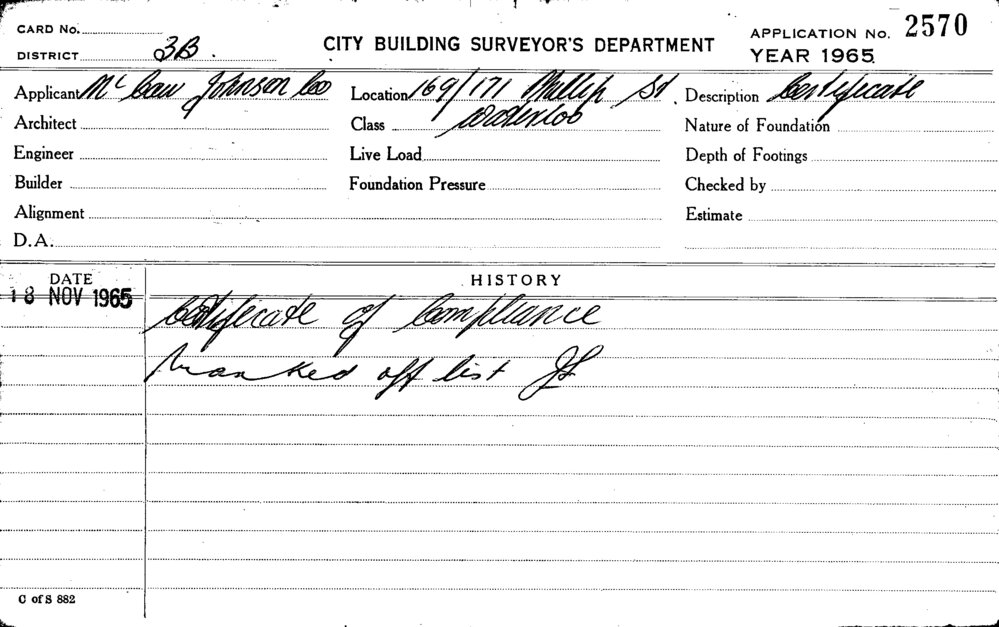 CARD No.
DISTRICT 3B.
CITY BUILDING SURVEYOR'S DEPARTMENT
APPLICATION No. 2570
YEAR 1965
Applicant Mc Caw Johnson Co
Location 169/171 Phillip St.
Waterloo
Description Certificate
Architect
Class
Nature of Foundation
Engineer
Live Load
Depth of Footings
Builder
Foundation Pressure
Checked by
Alignment
Estimate
D.A.
DATE
HISTORY
18 NOV 1965
Certificate of Compliance
Marked off list
C of S 882